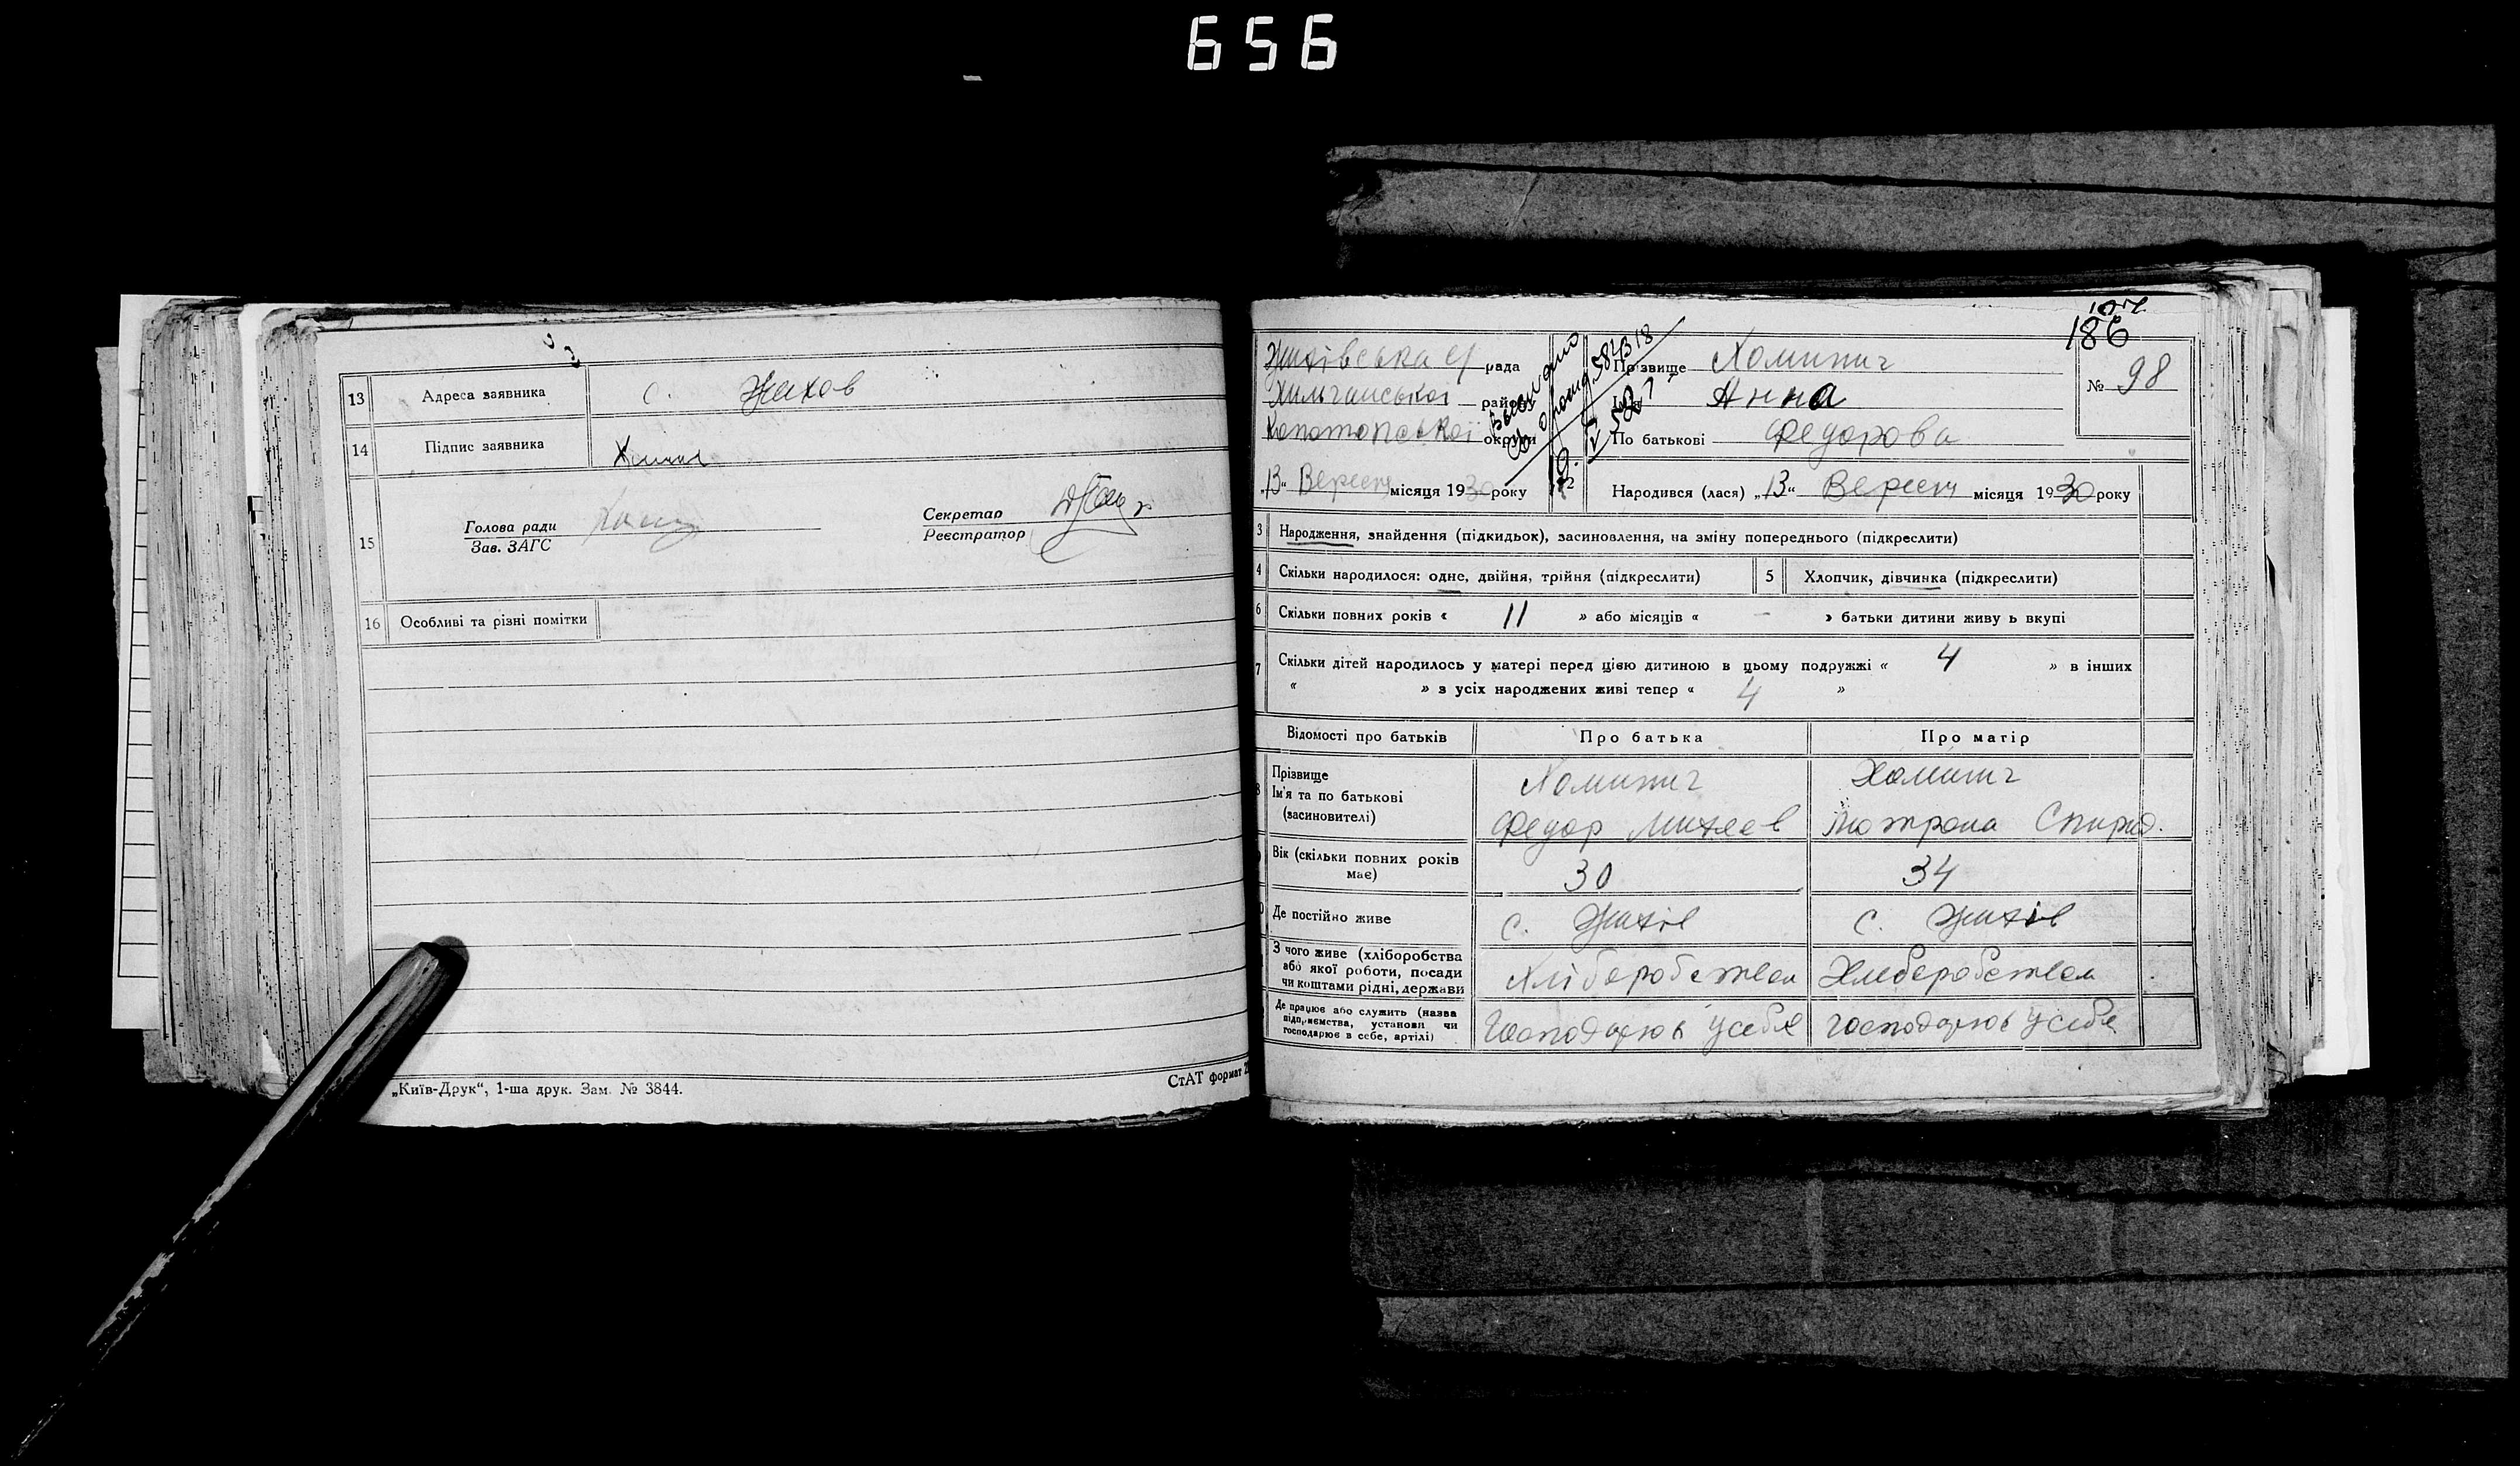 656
13 Адреса заявника с. Жихов
14 Підпис заявника
15 Голова ради
Зав. ЗАГС
Секретар
Реєстратор
16 Особливі та різні помітки
„Київ-Друк“, 1-ша друк. Зам. № 3844.
СтАТ формат
186
Жихівська с/ рада
Хильчанської району
Конотопської округи
Прізвище Хоминич
Ім'я Анна
По батькові Федорова
№ 98
„13“ Вересня місяця 1930 року
2 Народився (лася) „13“ Вересня місяця 1930 року
3 Народження, знайдення (підкидьок), засиновлення, на зміну попереднього (підкреслити)
4 Скільки народилося: одне, двійня, трійня (підкреслити)
5 Хлопчик, дівчинка (підкреслити)
6 Скільки повних років « 11 » або місяців « — » батьки дитини живу ь вкупі
7 Скільки дітей народилось у матері перед цією дитиною в цьому подружжі « 4 » в інших
« » з усіх народжених живі тепер « 4 »
Відомості про батьків Про батька Про матір
Прізвище Хоминич Хоминич
Ім'я та по батькові
(засиновителі) Федор Михеев Мотрона Спирид.
Вік (скільки повних років
має) 30 34
Де постійно живе с. Жихів с. Жихів
З чого живе (хліборобства
або якої роботи, посади
чи коштами рідні, держави Хліборобством Хлеборобством
Де працює або служить (назва
підприємства, установи чи
господарює в себе, артілі) Господарюв у себе господарюв у себе